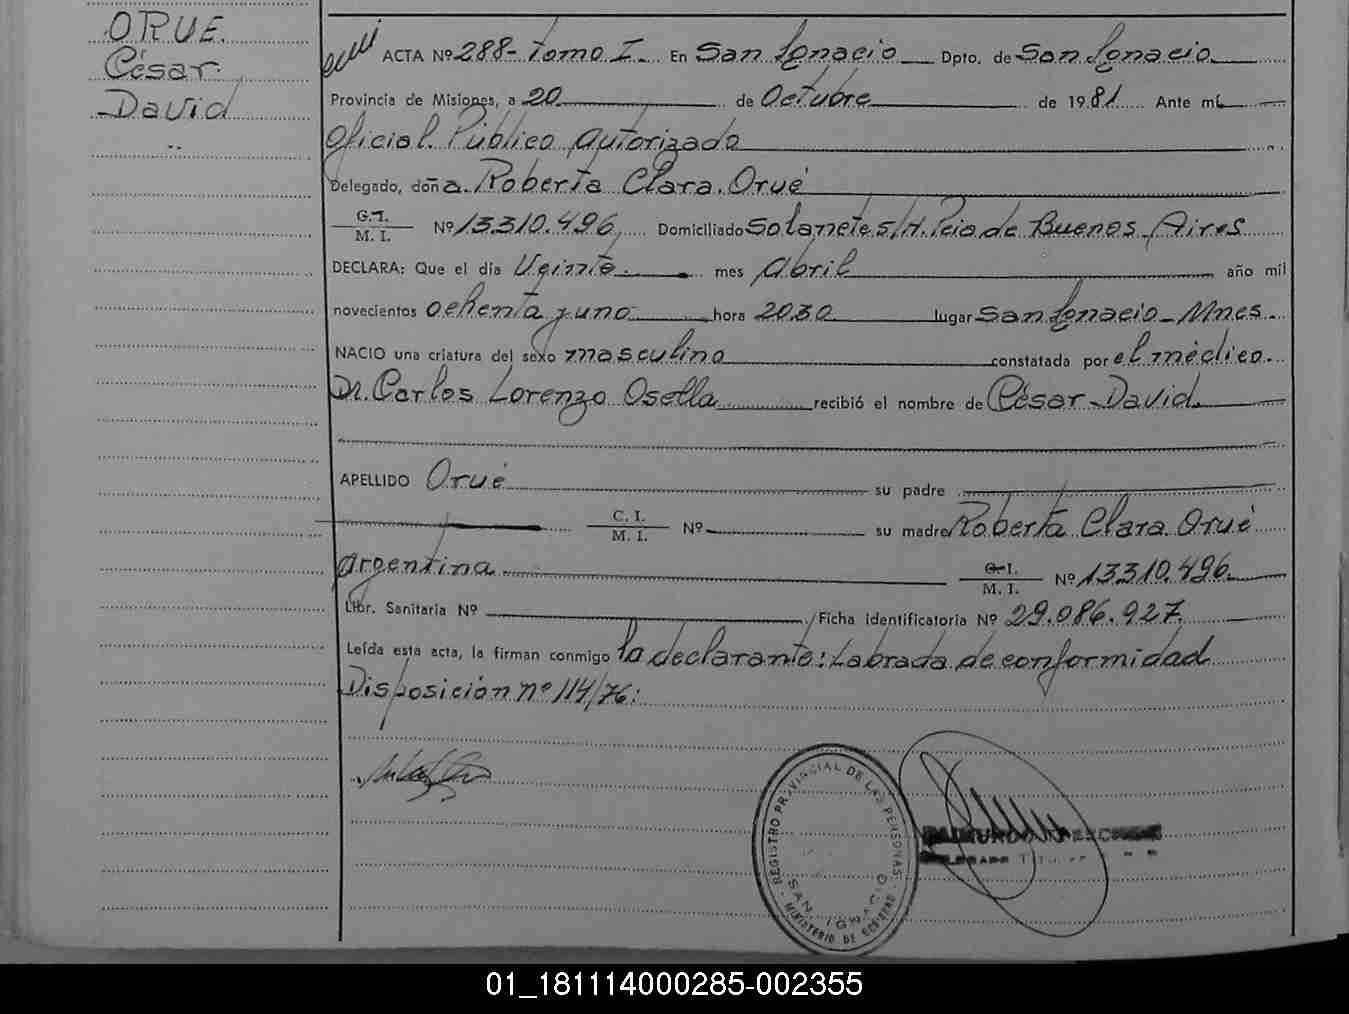 ORUE
César
David
ACTA Nº 288- Tomo I. En San Ignacio Dpto. de San Ignacio
Provincia de Misiones, a 20 de Octubre de 1981 Ante mí
Oficial Público Autorizado
Delegado, doña Roberta Clara Orué
C.I. / M. I. Nº 13.310.496 Domiciliado Solanet e S/N. Pcia de Buenos Aires
DECLARA: Que el día Veinte mes Abril año mil
novecientos ochenta y uno hora 2030 lugar San Ignacio - Mnes.
NACIO una criatura del sexo masculino constatada por el médico
Dr. Carlos Lorenzo Osella recibió el nombre de César David
APELLIDO Orué su padre
C. I. / M. I. Nº su madre Roberta Clara Orué
argentina C. I. / M. I. Nº 13.310.496
Libr. Sanitaria Nº Ficha identificatoria Nº 29.086.927
Leída esta acta, la firman conmigo la declarante: Labrada de conformidad
Disposición nº 114/76:
REGISTRO PROVINCIAL DE LAS PERSONAS
SAN IGNACIO
MINISTERIO DE GOBIERNO
01_181114000285-002355